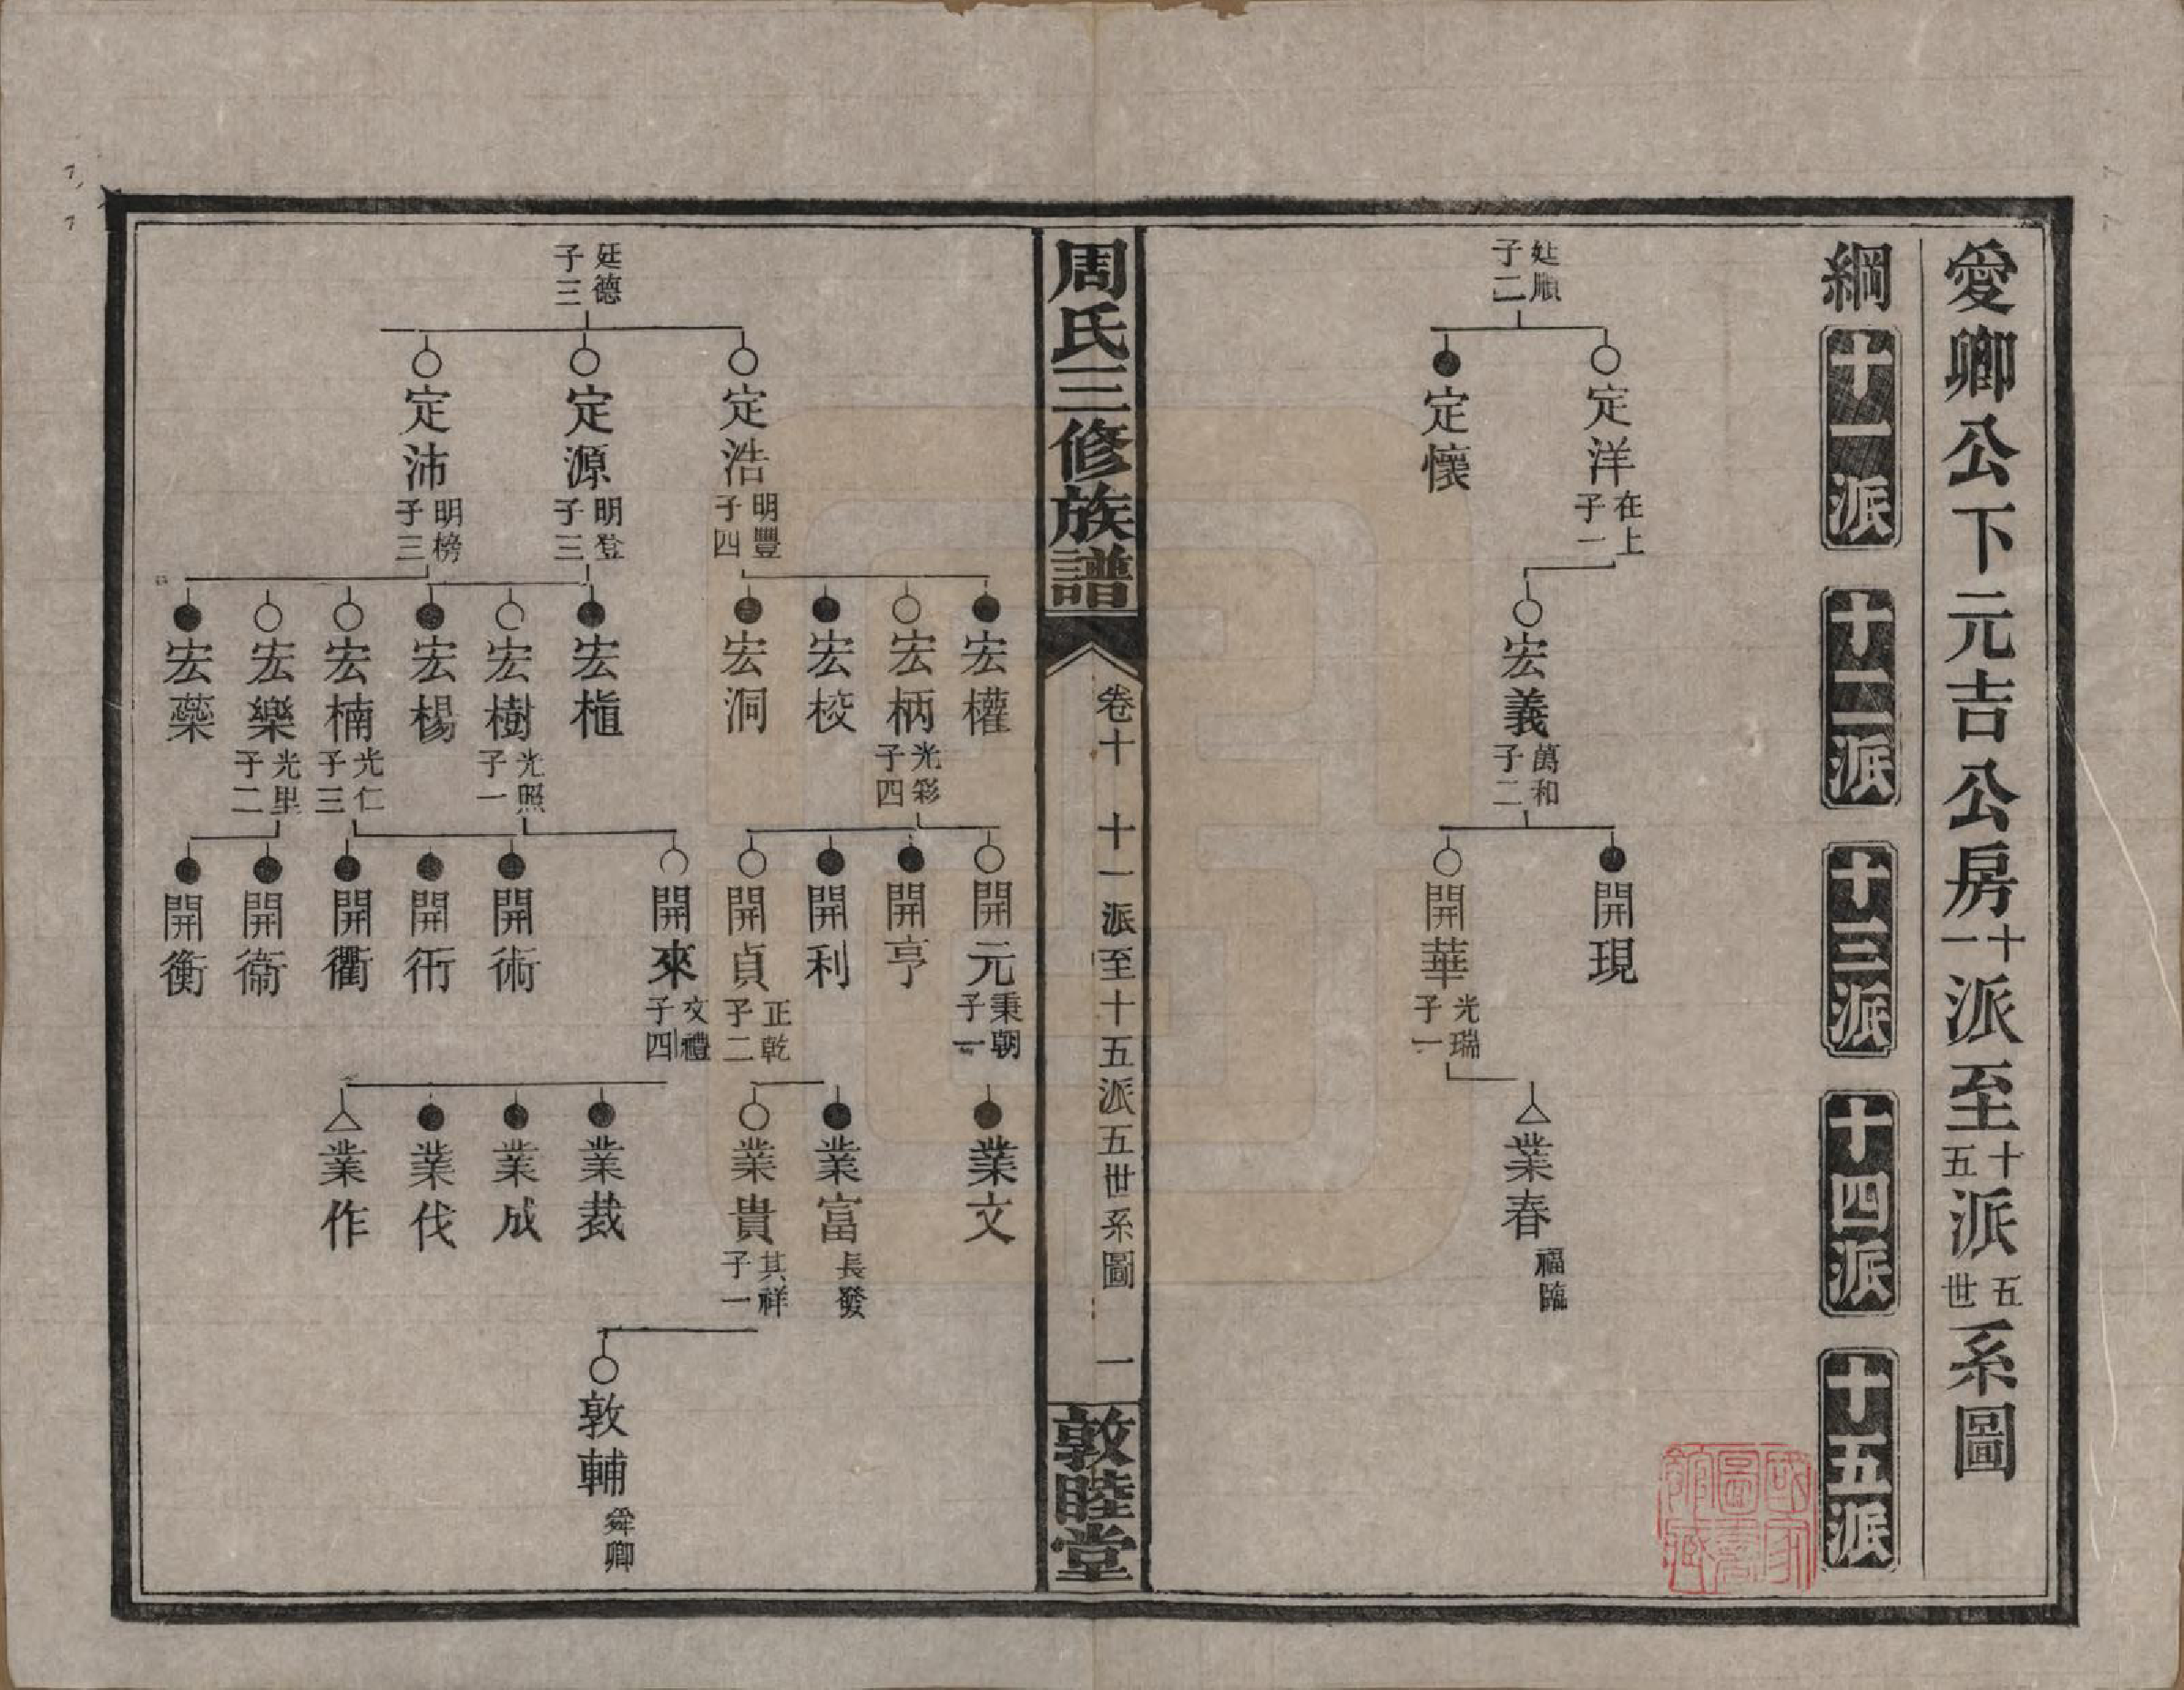 愛卿公下元吉公房十一派至十五派五世系圖
綱 十一派 十二派 十三派 十四派 十五派
廷順
子二
定洋 在上 子一
定懷
宏義 萬和 子二
開現
開華 光瑞 子一
業春 福臨
周氏三修族譜
卷十 十一派至十五派五世系圖 一
敦睦堂
廷德
子三
定浩 明豐 子四
定源 明登 子三
定沛 明榜 子三
宏權
宏柄 光彩 子四
宏校
宏洞
宏植
宏樹 光照 子一
宏楊
宏楠 光仁 子三
宏樂 光里 子二
宏藥
開元 秉朝 子一
開亨
開利
開貞 正乾 子二
開來 文禮 子四
開術
開衎
開衢
開衛
開衡
業文
業富 長發
業貴 其祥 子一
業裁
業成
業伐
業作
敦輔 舜卿
國家圖書館藏